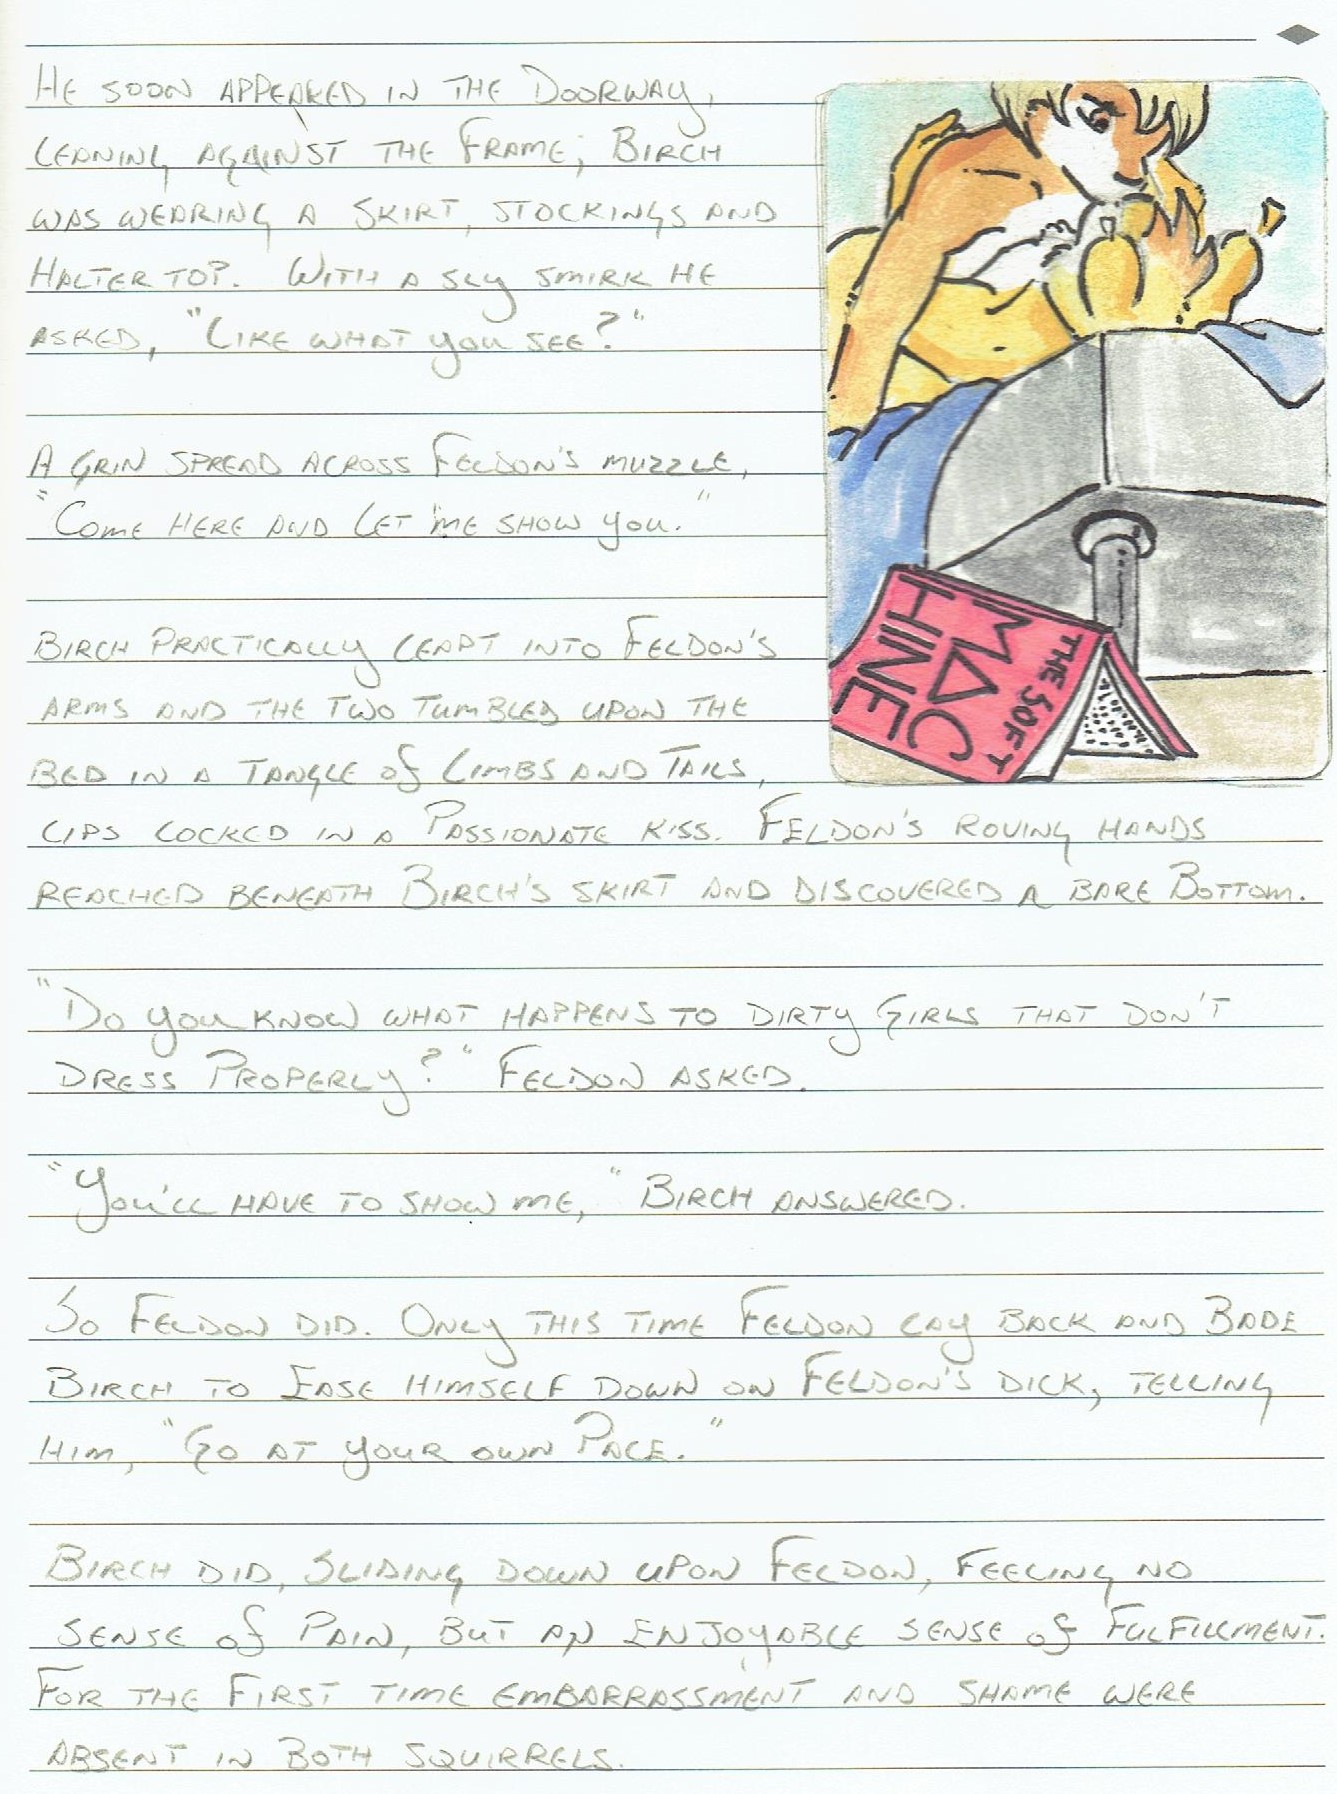 He soon appeared in the Doorway,
leaning against the Frame; Birch
was wearing a skirt, stockings and
Halter top. With a sly smirk he
asked, "Like what you see?"
A grin spread across Feldon's muzzle,
"Come here and let me show you."
Birch practically leapt into Feldon's
arms and the two tumbled upon the
bed in a tangle of Limbs and Tails,
lips locked in a Passionate kiss. Feldon's roving hands
reached beneath Birch's skirt and discovered a bare Bottom.
"Do you know what happens to dirty Girls that don't
dress Properly?" Feldon asked.
"You'll have to show me," Birch answered.
So Feldon did. Only this time Feldon lay back and Bade
Birch to Ease himself down on Feldon's dick, telling
him, "Go at your own Pace."
Birch did, Sliding down upon Feldon, feeling no
sense of Pain, But an enjoyable sense of Fulfillment.
For the First time embarrassment and shame were
absent in both squirrels.
THE SOFT
MAC
HINE